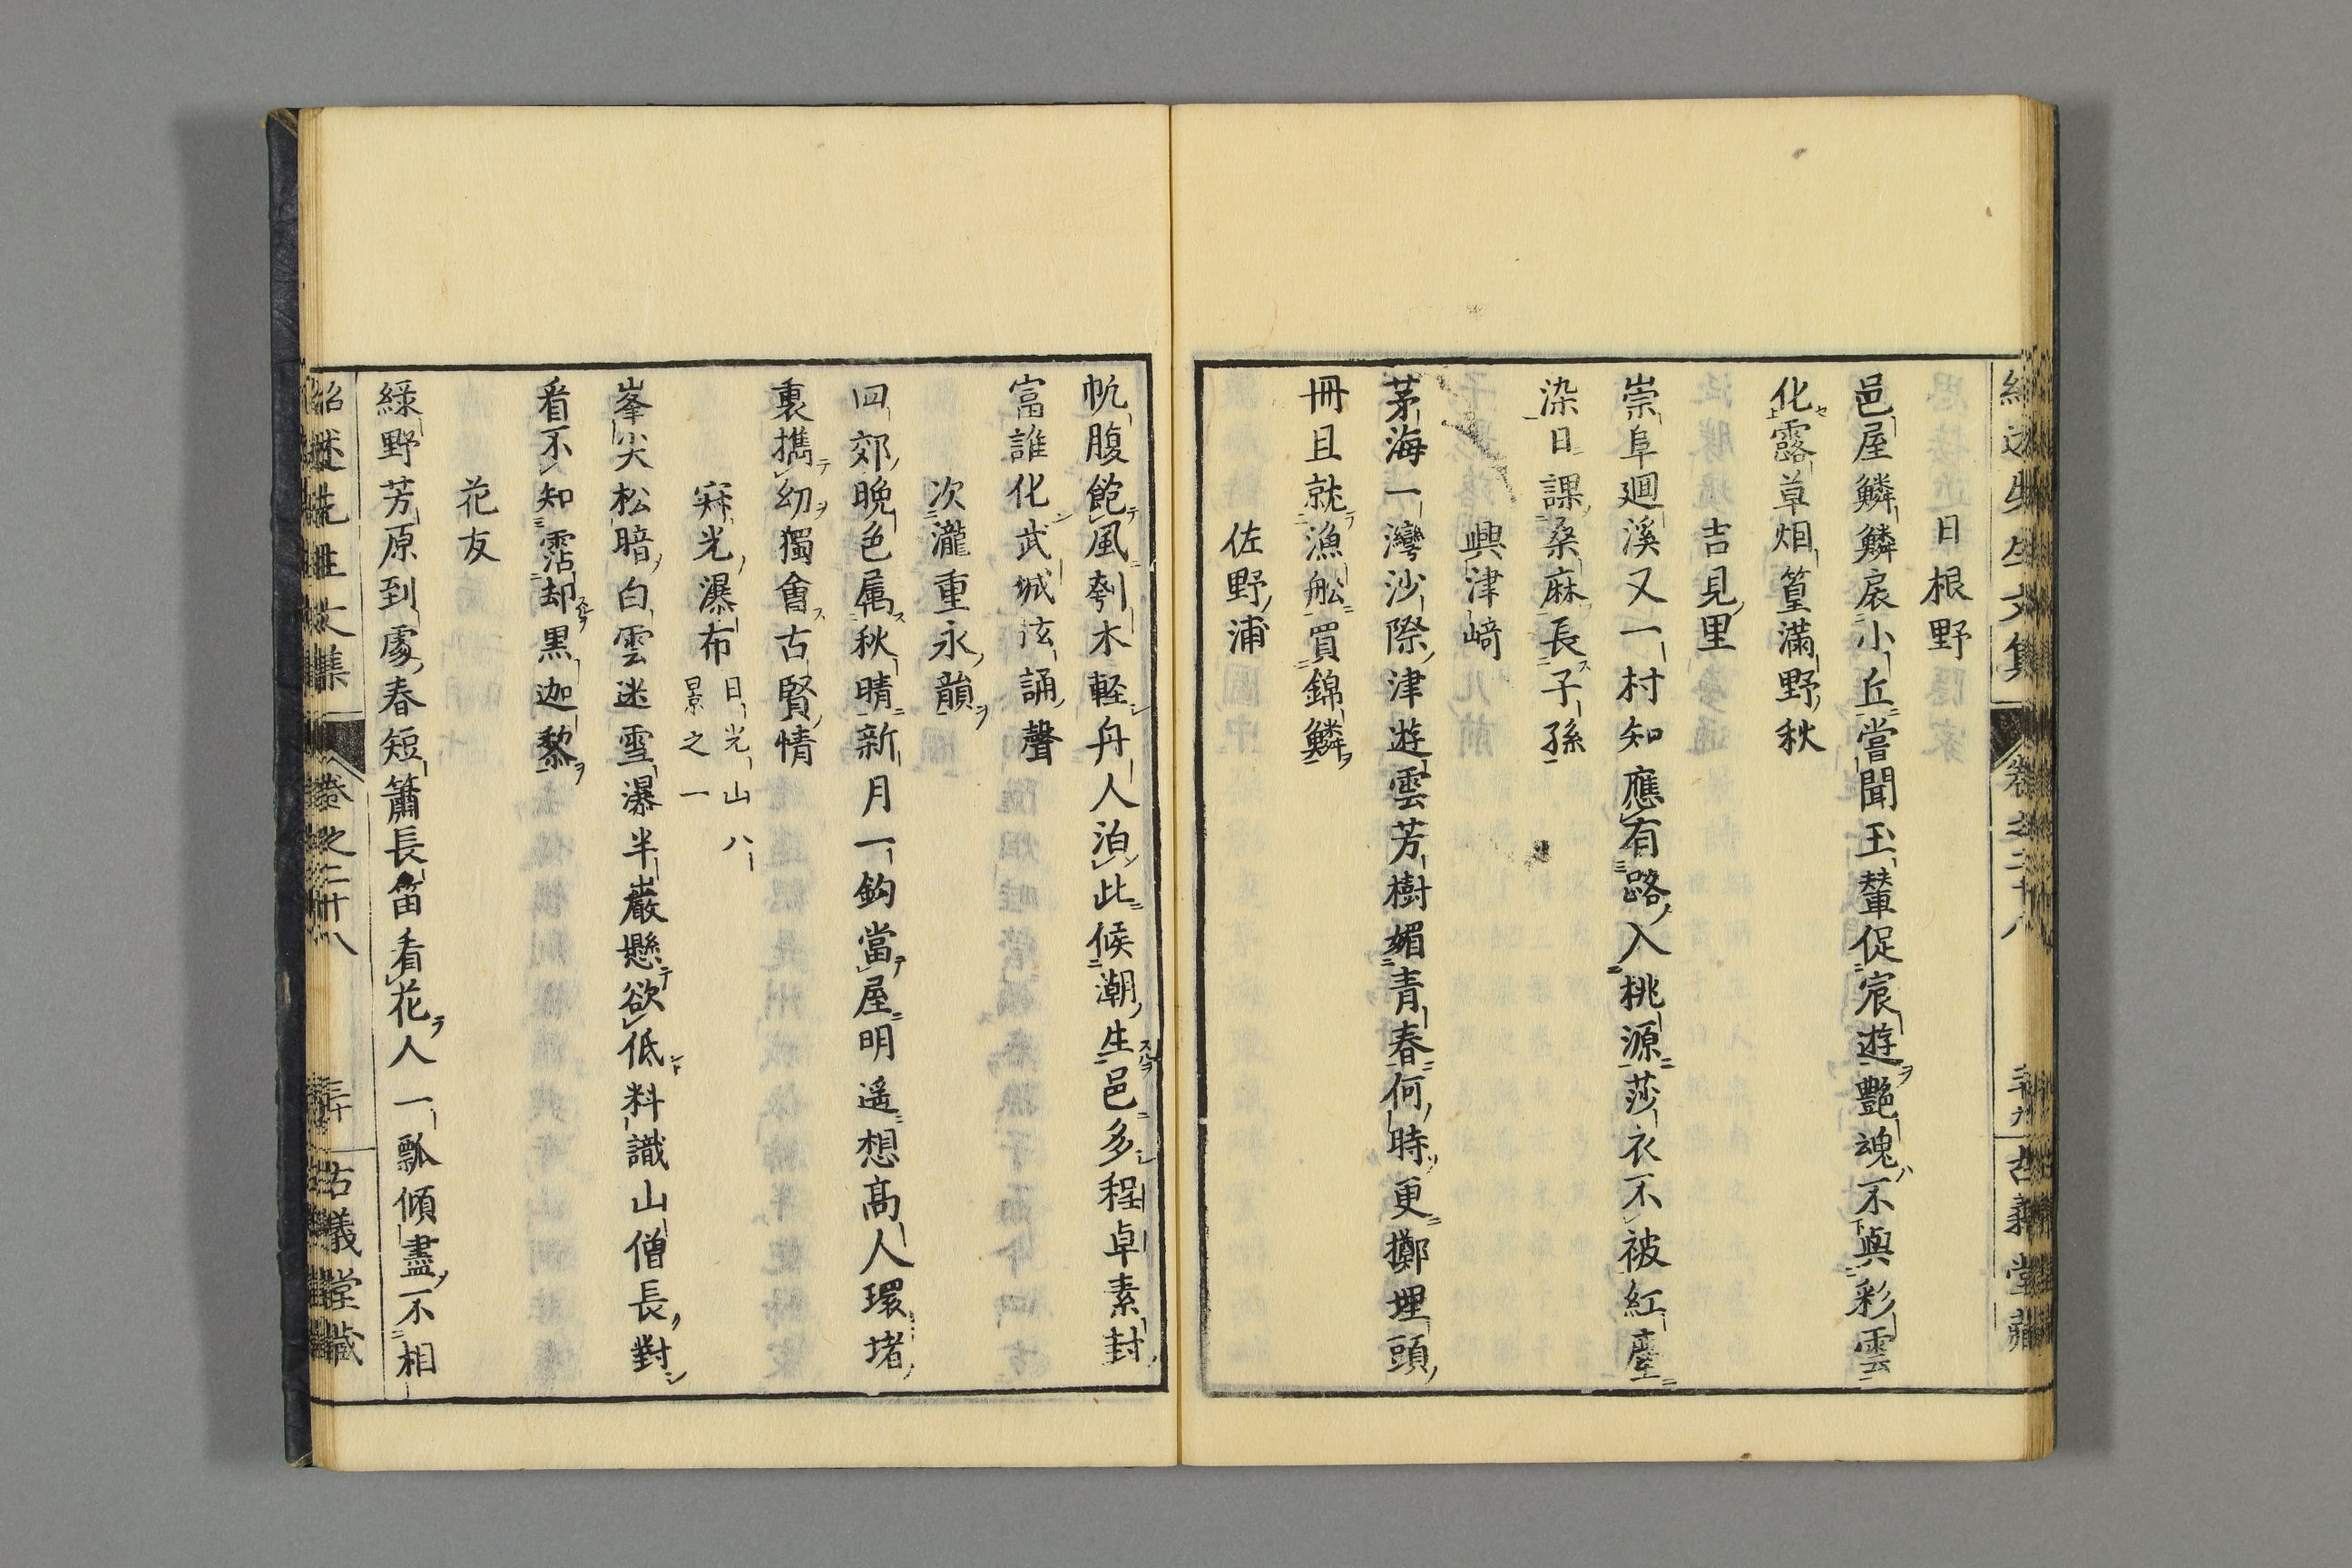 日根野
邑屋鱗鱗扆小丘嘗聞玉輦促宸遊艷魂不與彩雲
化露草烟篁滿野秋
吉見里
崇阜廻溪又一村知應有路入桃源莎衣不被紅塵
染日課桑麻長子孫
興津﨑
茅海一灣沙際津遊雲芳樹媚青春何時更擲埋頭
冊且就漁舩買錦鱗
佐野浦
帆腹飽風刳木軽舟人泊此候潮生邑多程卓素封
富誰化武城弦誦聲
次瀧重永韻
回郊晩色属秋晴新月一鈎當屋明遥想髙人環堵
裏擕幼獨會古賢情
寐光瀑布 日光山八景之一
峯尖松暗白雲迷雪瀑半巖懸欲低料識山僧長對
看不知霑却黒迦黎
花友
緑野芳原到處春短簫長笛看花人一瓢傾盡不相
紹述先生文集 卷之二十八 三十 古義堂藏